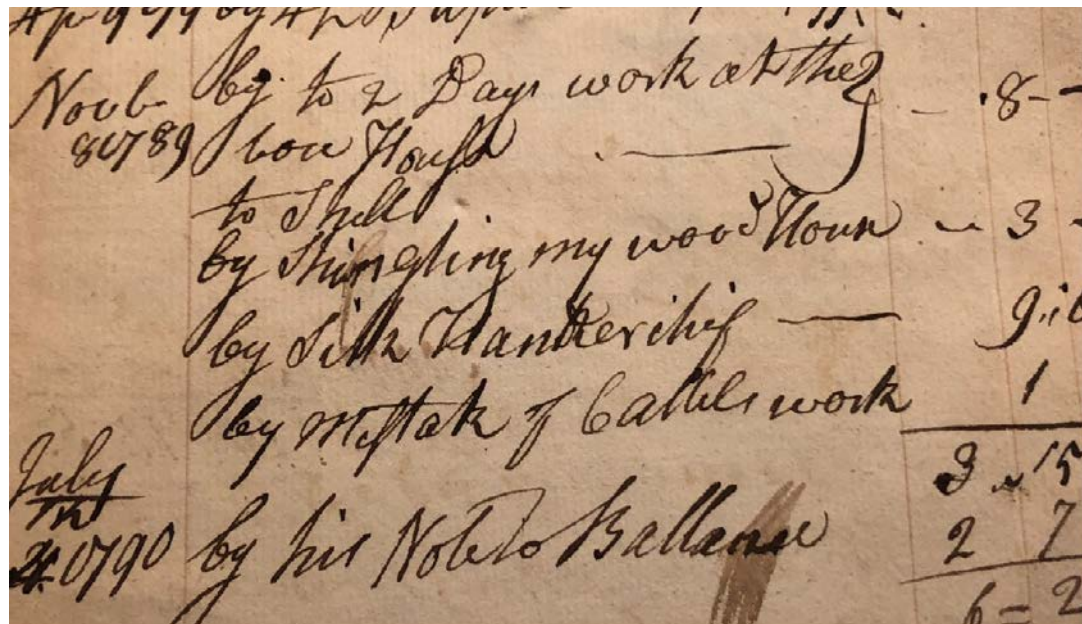 Novb by to 2 Days work at the - 8 -
1789 cow House
to Shell
by Shingling my wood House - 3 -
by Silk Hankerchif
by Mistak of Cattels work 1
July 3 15
1790 by his Note to Ballance 2 7
6 = 2